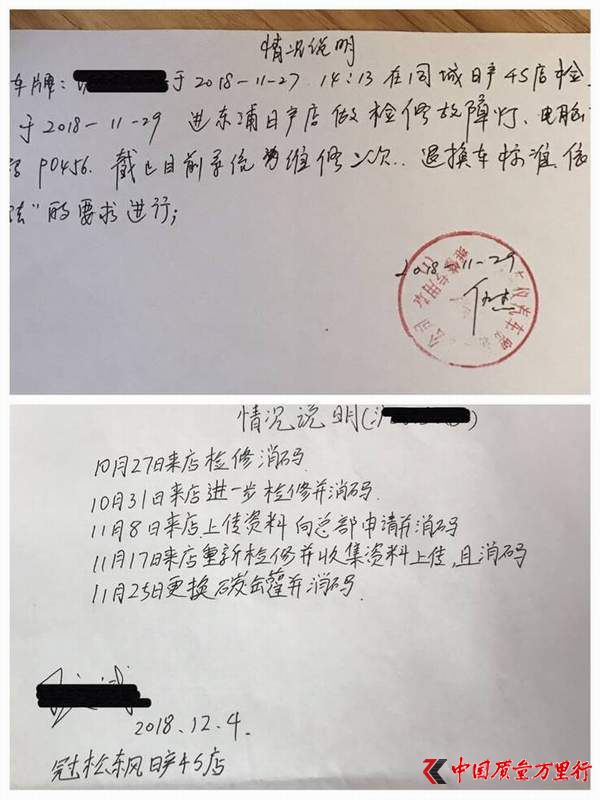 情况说明
车牌: 于2018-11-27 14:13在同城日产4S店检
于2018-11-29 进东浦日产店做检修故障灯、电脑
P0456. 截止目前系统为维修2次.. 退换车标准依
法"的要求进行;
2018-11-29
情况说明(沪
10月27日来店检修消码
10月31日来店进一步检修并消码
11月8日来店上传资料向总部申请并消码
11月17日来店重新检修并收集资料上传,且消码
11月25日更换碳缶蓬并消码
2018.12.4
冠松东风日产4S店
中国质量万里行